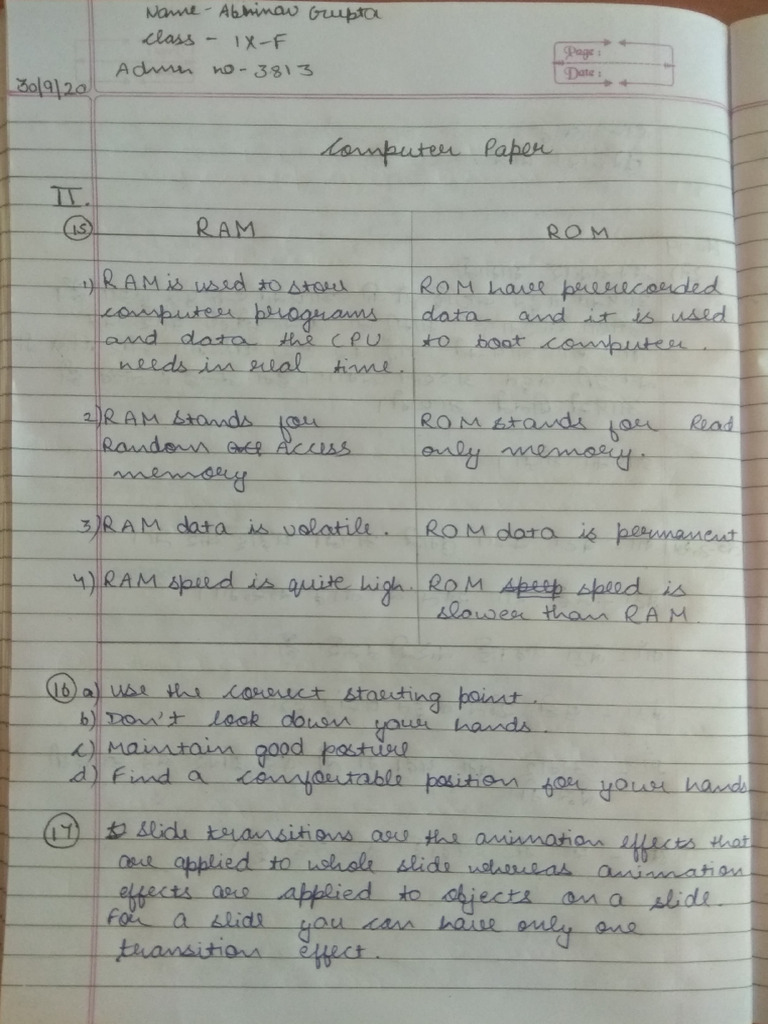 Name - Abhinav Gupta
Class - IX-F
Admn no - 3813
Page :
Date :
30/9/20
Computer Paper
II.
15 RAM ROM
1) RAM is used to store
computer programs
and data the CPU
needs in real time.
ROM have prerecorded
data and it is used
to boot computer.
2) RAM stands for
Random Access
memory
ROM stands for Read
only memory.
3) RAM data is volatile. ROM data is permanent
4) RAM speed is quite high. ROM speed is
slower than RAM.
16 a) Use the correct starting point.
b) Don't look down your hands.
c) Maintain good posture
d) Find a comfortable position for your hands
17 Slide transitions are the animation effects that
are applied to whole slide whereas animation
effects are applied to objects on a slide.
For a slide you can have only one
transition effect.